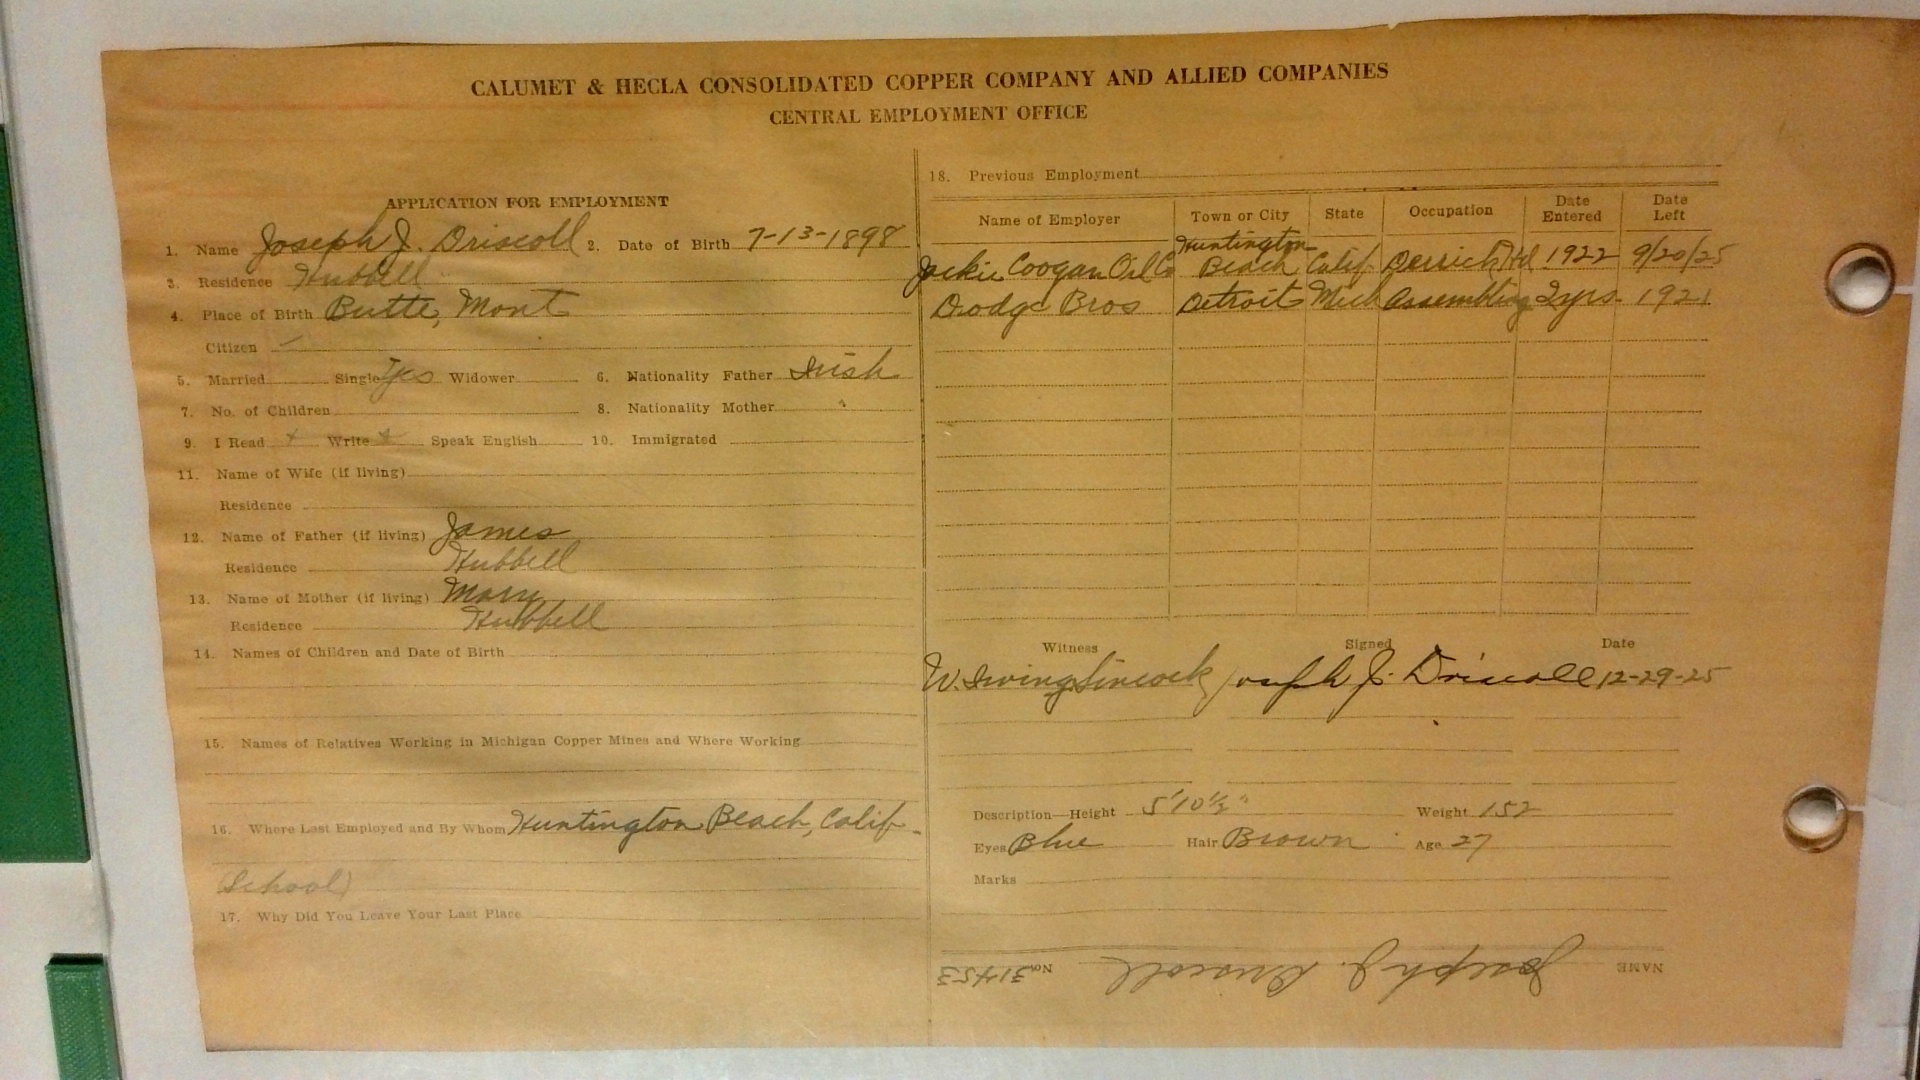 CALUMET & HECLA CONSOLIDATED COPPER COMPANY AND ALLIED COMPANIES
CENTRAL EMPLOYMENT OFFICE
APPLICATION FOR EMPLOYMENT
1. Name Joseph J. Driscoll 2. Date of Birth 7-13-1898
3. Residence Hubbell
4. Place of Birth Butte, Mont
Citizen
5. Married Single Yes Widower 6. Nationality Father Irish
7. No. of Children 8. Nationality Mother "
9. I Read + Write + Speak English 10. Immigrated
11. Name of Wife (if living)
Residence
12. Name of Father (if living) James
Residence Hubbell
13. Name of Mother (if living) Mary
Residence Hubbell
14. Names of Children and Date of Birth
15. Names of Relatives Working in Michigan Copper Mines and Where Working
16. Where Last Employed and By Whom Huntington Beach, Calif.
(School)
17. Why Did You Leave Your Last Place
18. Previous Employment
Name of Employer Town or City State Occupation Date Entered Date Left
Jackie Coogan Oil Co Huntington Beach Calif. Derrick 1922 9/20/25
Dodge Bros Detroit Mich Assembling 2yrs. 1921
Witness Signed Date
W. Irving Sincock Joseph J. Driscoll 12-29-25
Description—Height 5'10½" Weight 152
Eyes Blue Hair Brown Age 27
Marks
NAME Joseph J. Driscoll No. 31453